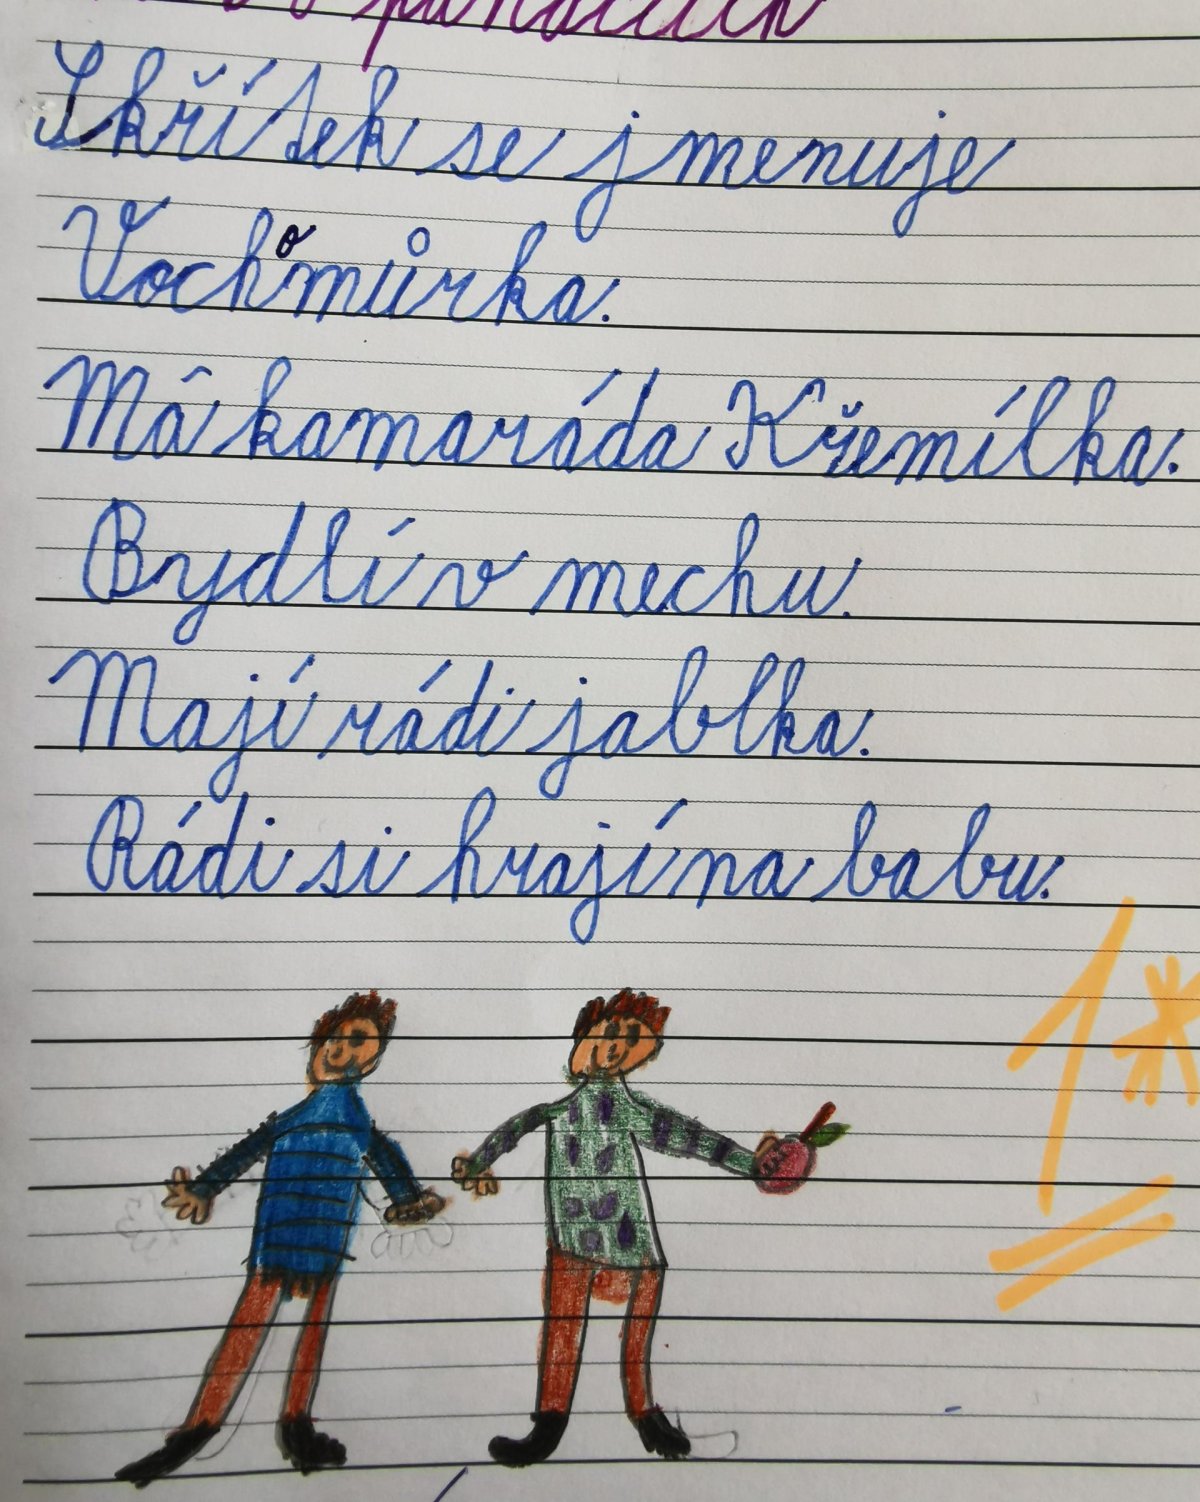 Skřítek se jmenuje
Vochomůrka.
Má kamaráda Křemílka.
Bydlí v mechu.
Mají rádi jablka.
Rádi si hrají na babu.
1*